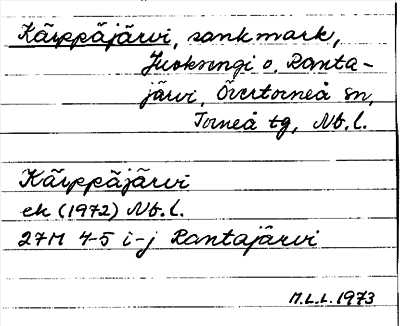 Kärppäjärvi, sankmark,
Juoksengi o. Ranta-
järvi, Övertorneå sn,
Torneå tg, Nb.l.
Kärppäjärvi
ek (1972) Nb.l.
27M 4-5 i-j Rantajärvi
M.L.L. 1973